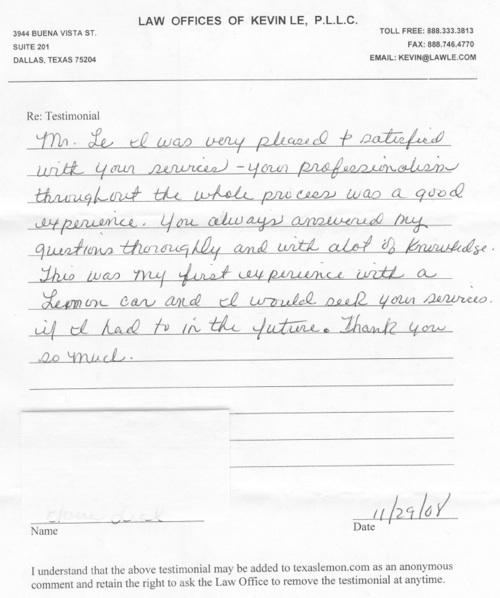 LAW OFFICES OF KEVIN LE, P.L.L.C.
3944 BUENA VISTA ST.
SUITE 201
DALLAS, TEXAS 75204
TOLL FREE: 888.333.3813
FAX: 888.746.4770
EMAIL: KEVIN@LAWLE.COM
Re: Testimonial
Mr. Le I was very pleased & satisfied
with your services - your professionalism
throughout the whole process was a good
experience. You always answered my
questions thoroughly and with alot of knowledge.
This was my first experience with a
Lemon car and I would seek your services
if I had to in the future. Thank you
so much.
11/29/08
Name
Date
I understand that the above testimonial may be added to texaslemon.com as an anonymous
comment and retain the right to ask the Law Office to remove the testimonial at anytime.